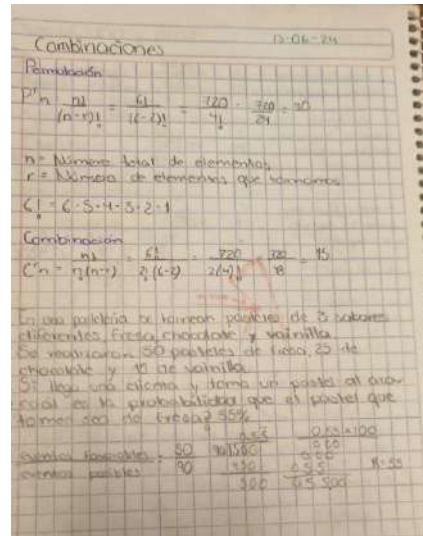 Combinaciones 13-06-24
Permutación
P^r n = n! / (n-r)! = 6! / (6-2)! = 720 / 4! = 720 / 24 = 30
n = Número total de elementos
r = Número de elementos que tomamos
6! = 6·5·4·3·2·1
Combinación
C^r n = n! / r!(n-r) = 6! / 2!(6-2) = 720 / 2(4)! = 15
En una pastelería se hornean pasteles de 3 sabores
diferentes, fresa, chocolate y vainilla
Se realizaron 50 pasteles de fresa, 25 de
chocolate y de vainilla
Si llega una y toma un pastel al azar
cual es la probabilidad que el pastel que
tomen sea de fresa? 55%
0.55 0.55 x 100
eventos favorables = 50 90 500 000
eventos posibles 90 450 055 R=55
500 05500